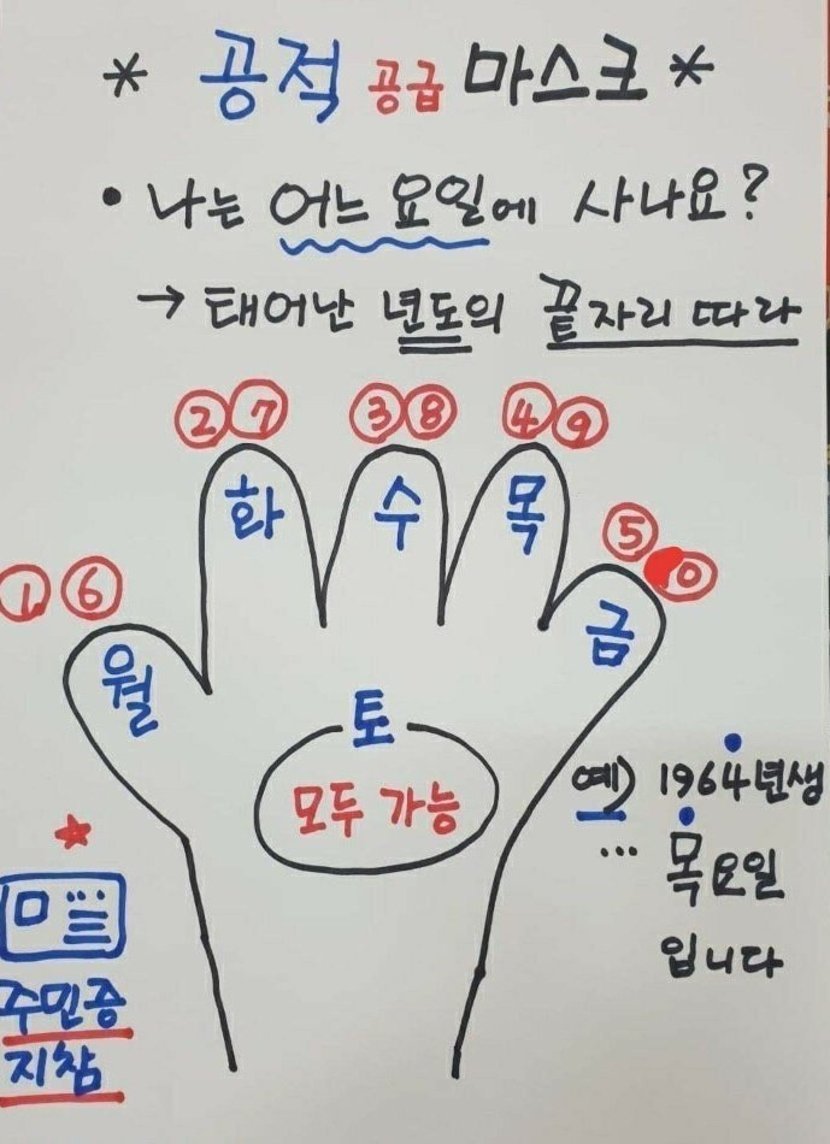 * 공적 공급 마스크 *
• 나는 어느 요일에 사나요?
→ 태어난 년도의 끝자리 따라
② ⑦ ③ ⑧ ④ ⑨
화 수 목
⑤ ⓪
① ⑥
금
월
토
모두 가능
예) 1964년생
... 목요일
입니다
주민증
지참